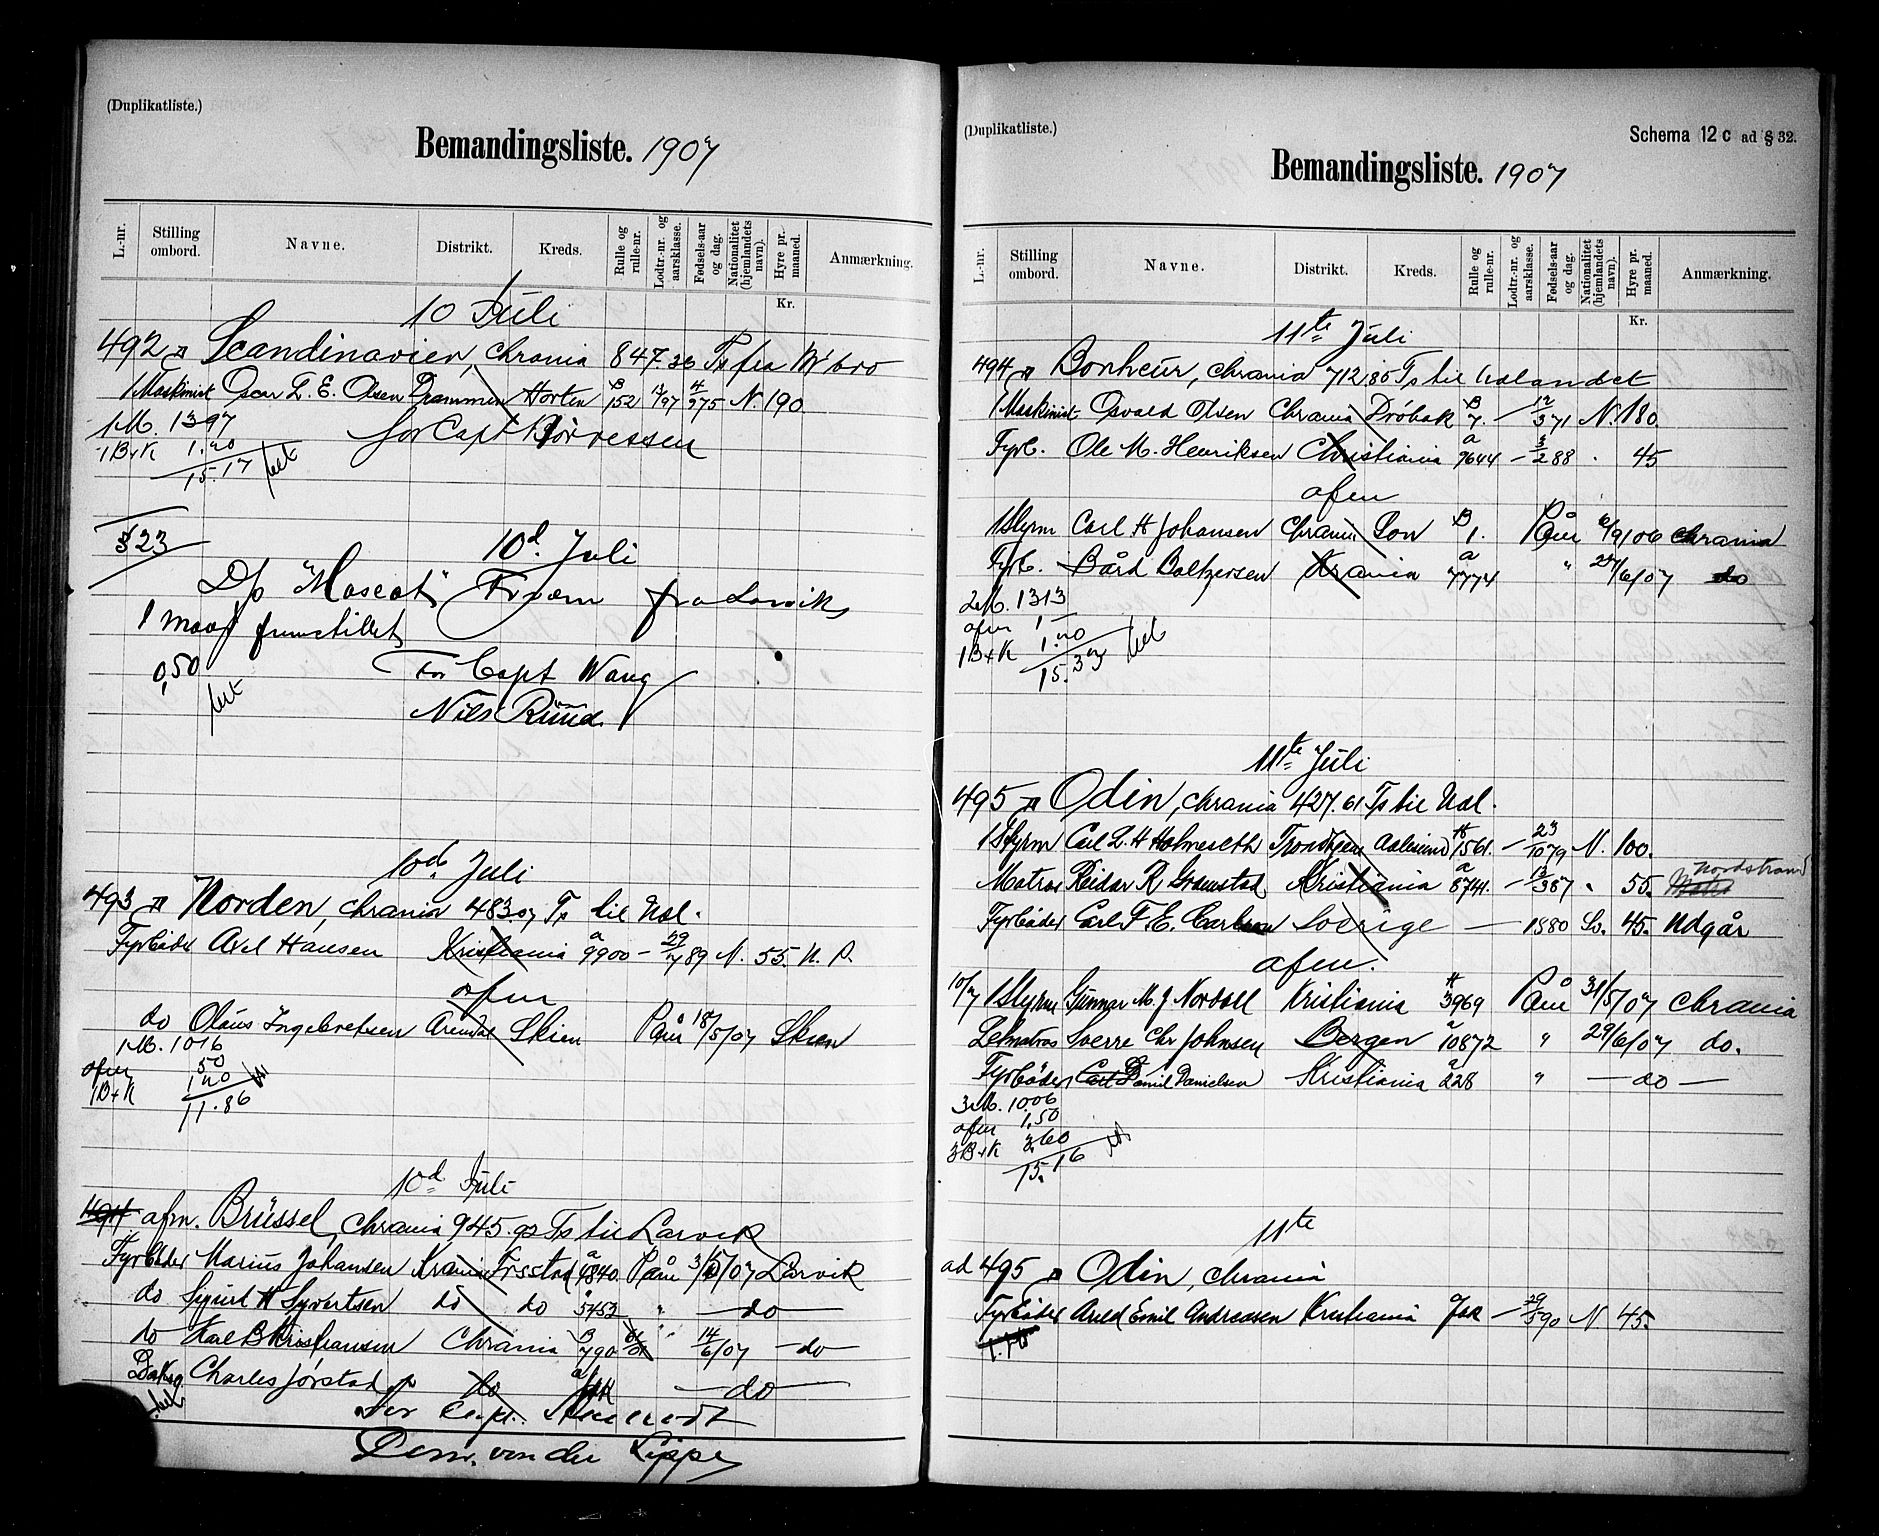 (Duplikatliste.)
Bemandingsliste. 1907
L.-nr. Stilling ombord. Navne. Distrikt. Kreds. Rulle og rulle-nr. Lodtr.-nr. og aarsklasse. Fødsels-aar og dag. Nationalitet (hjemlandets navn). Hyre pr. maaned. Anmærkning.
Kr.
10 Juli
492 Scandinavien, Chrania 847.26 Ts fra
1 Maskinist Oscar L. E. Olsen Drammen Horten B 152 4/375 N. 190
1 M. 1397
for Capt
1 B+K 1.20
15.17
323
10d. Juli
D/s "Mascot" Tysem fra Larvik
1 Mand
0,50
For Capt Wang
Nils Ruud
10de Juli
493 Norden, Chrania 483.07 Ts til Udl.
Fyrböder Axel Hansen Kristiania a 9900 – 29/789 N. 55. N. P.
afm
do Olaus Ingebretsen Arendal Skien Påm 18/5/07 Skien
1 M. 1016
afm 50
1 B+K 1.20
11.86
10d Juli
494 afm. Brüssel, Chrania 945.92 Ts til Larvik
Fyrböder Marius Johansen Krania Frsstad a 4840 Påm 3/5/07 Larvik
do Sigurt H Syvertsen do do 5453 " – do –
do Karl B Kristiansen Chrania B 790 " 14/6/07 – do –
Charles Jørstad do – do –
For Capt.
von der Lippe
(Duplikatliste.)
Schema 12 c ad § 32.
Bemandingsliste. 1907
L.-nr. Stilling ombord. Navne. Distrikt. Kreds. Rulle og rulle-nr. Lodtr.-nr. og aarsklasse. Fødsels-aar og dag. Nationalitet (hjemlandets navn). Hyre pr. maaned. Anmærkning.
Kr.
11te Juli
494 Bonheur, Chrania 712.85 Ts til Udlandet
1 Maskinist Osvald Olsen Chrania Dröbak B 7. – 12/371 N. 180.
Fyrb. Ole M. Henriksen Christiania a 9644 – 3/288 45
afm
1 Styrm Carl H Johansen Chrania Son B 1. Påm 6/9/06 Chrania
Fyrb. Bård Baltzersen Krania a 7774 " 27/6/07 do
2 M. 1313
afm 1 –
1 B+K 1.20
15.37
11te Juli
495 Odin, Chrania 427.61 Ts til Udl.
1 Styrm Carl L. H Holmeseth Trondhjem Aalesund 1561. – 23/1079 N. 100.
Matros Reidar R Gramstad Kristiania a 8741. – 12/387 " 55. Nordstrand
Fyrböder Carl F. E. Carlson Sverige – 1880 Sv. 45. Udgår
afm.
10/7 1 Styrm Gunnar M. J Nordall Kristiania 3969 Påm 31/5/07 Chrania
Letmatros Sverre Chr Johnsen Bergen a 10872 " 29/6/07 do.
Fyrböder Carl Danil Danielsen Kristiania a 228 " – do –
3 M. 1006
afm 1,50
3 B+K 3.60
15.16
11te
ad 495 Odin, Chrania
Fyrböder Arvid Emil Andreasen Kristiania – 29/590 N. 45.